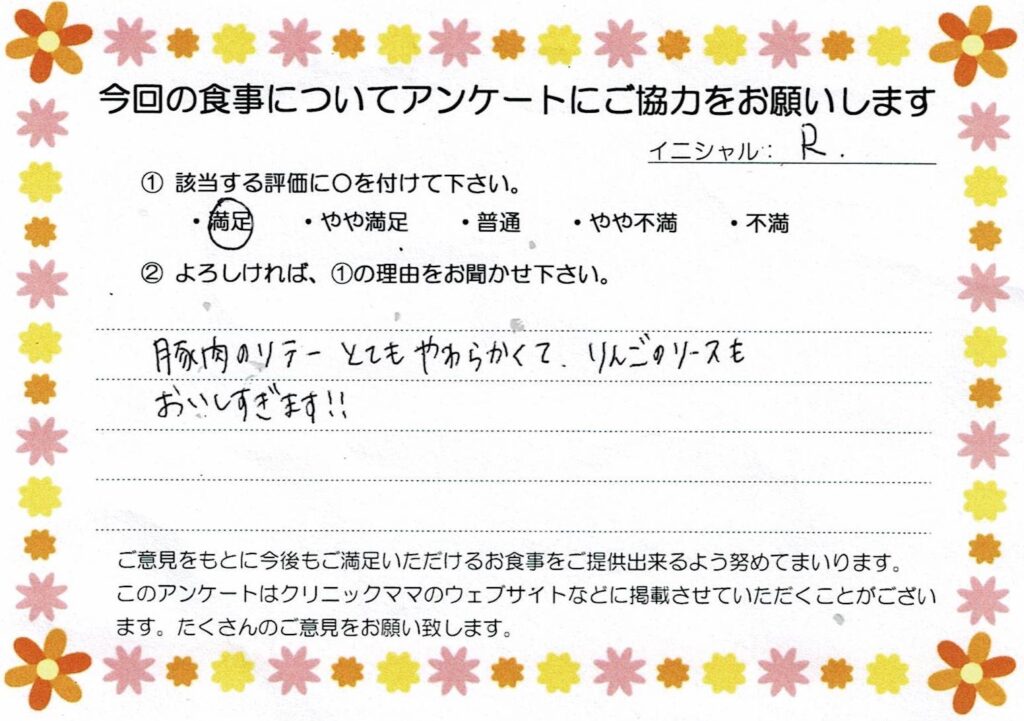 今回の食事についてアンケートにご協力をお願いします
イニシャル： R.
① 該当する評価に〇を付けて下さい。
・満足 ・やや満足 ・普通 ・やや不満 ・不満
② よろしければ、①の理由をお聞かせ下さい。
豚肉のソテーとてもやわらかくて、りんごのソースも
おいしすぎます!!
ご意見をもとに今後もご満足いただけるお食事をご提供出来るよう努めてまいります。
このアンケートはクリニックママのウェブサイトなどに掲載させていただくことがござい
ます。たくさんのご意見をお願い致します。